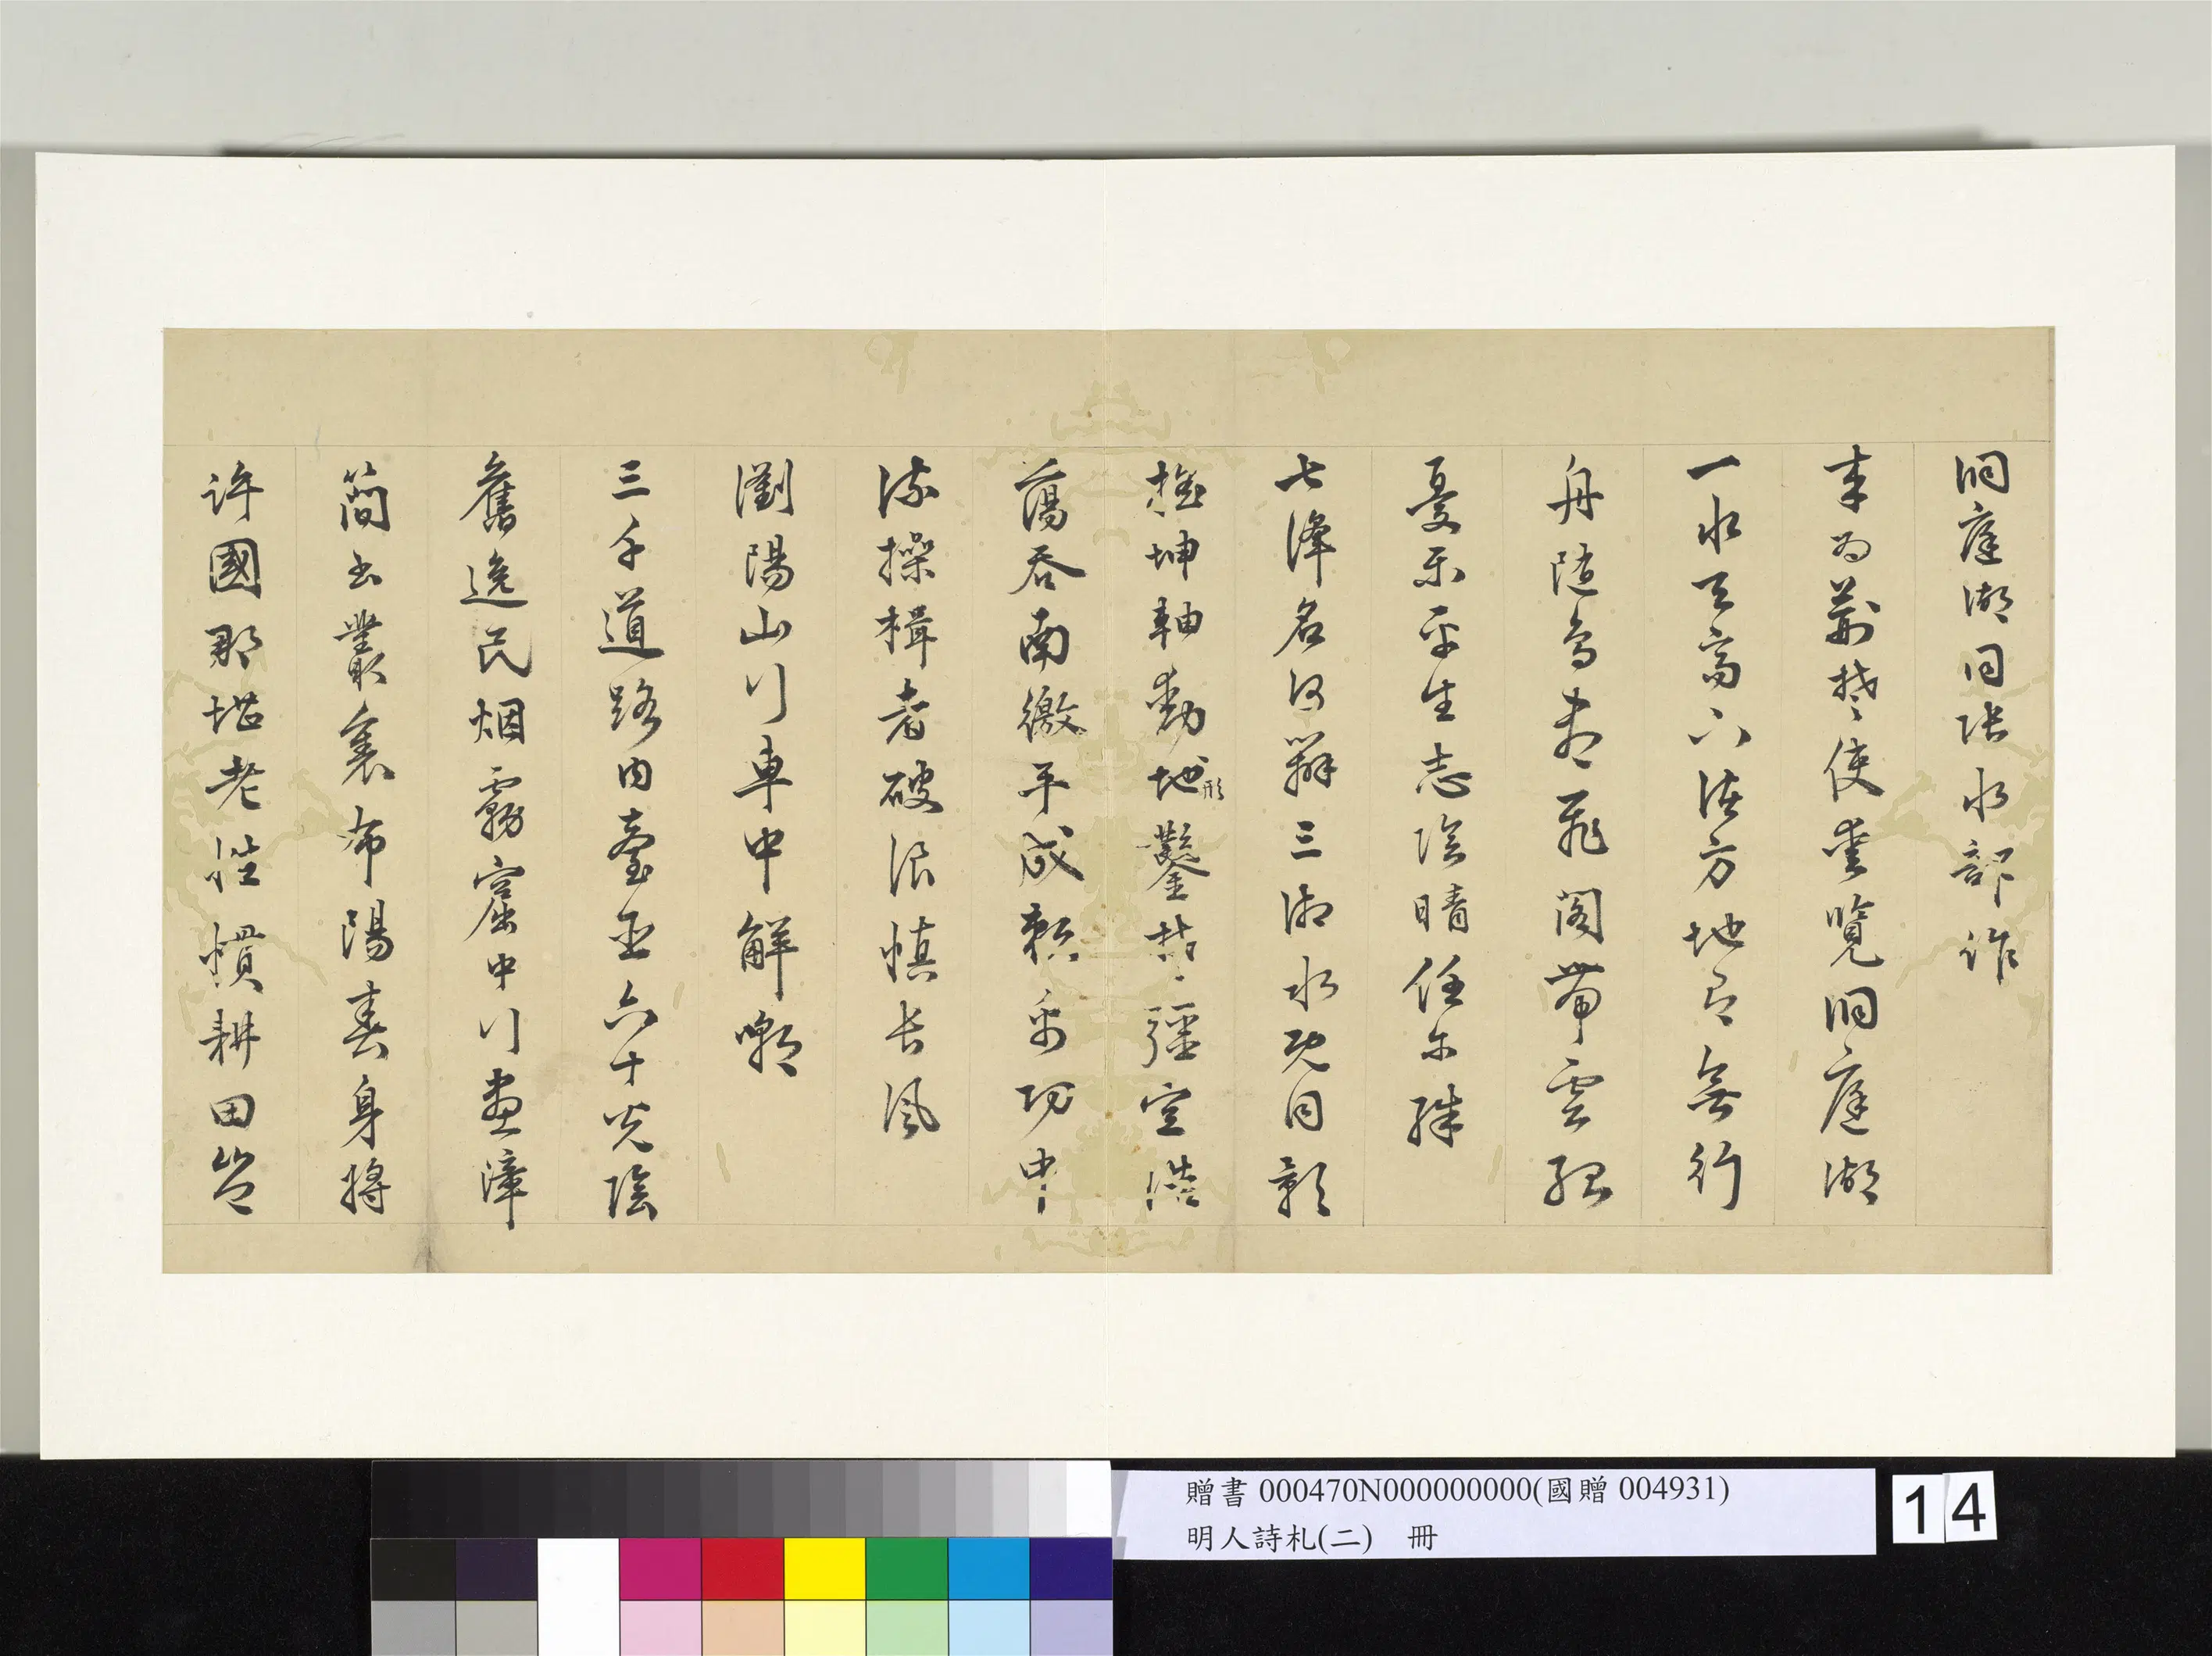 洞庭湖同張水部作
來為荊楚使壹覽洞庭湖
一水天高下諸方地有無行
舟隨鳥去飛閣帶雲孤
憂樂平生志陰晴任尔殊
七澤名何辯三湘水既同影
搖坤軸動地形鑿楚疆空浩
蕩吞南徼平成賴禹功中
流操楫者破浪慎長風
瀏陽山行車中解嘲
三千道路內臺丞六十光陰
舊逸民烟霧窟中行畫漳
簡書叢裏布陽春身將
許國那堪老性慣耕田豈
贈書 000470N000000000(國贈 004931)
明人詩札(二) 冊
14